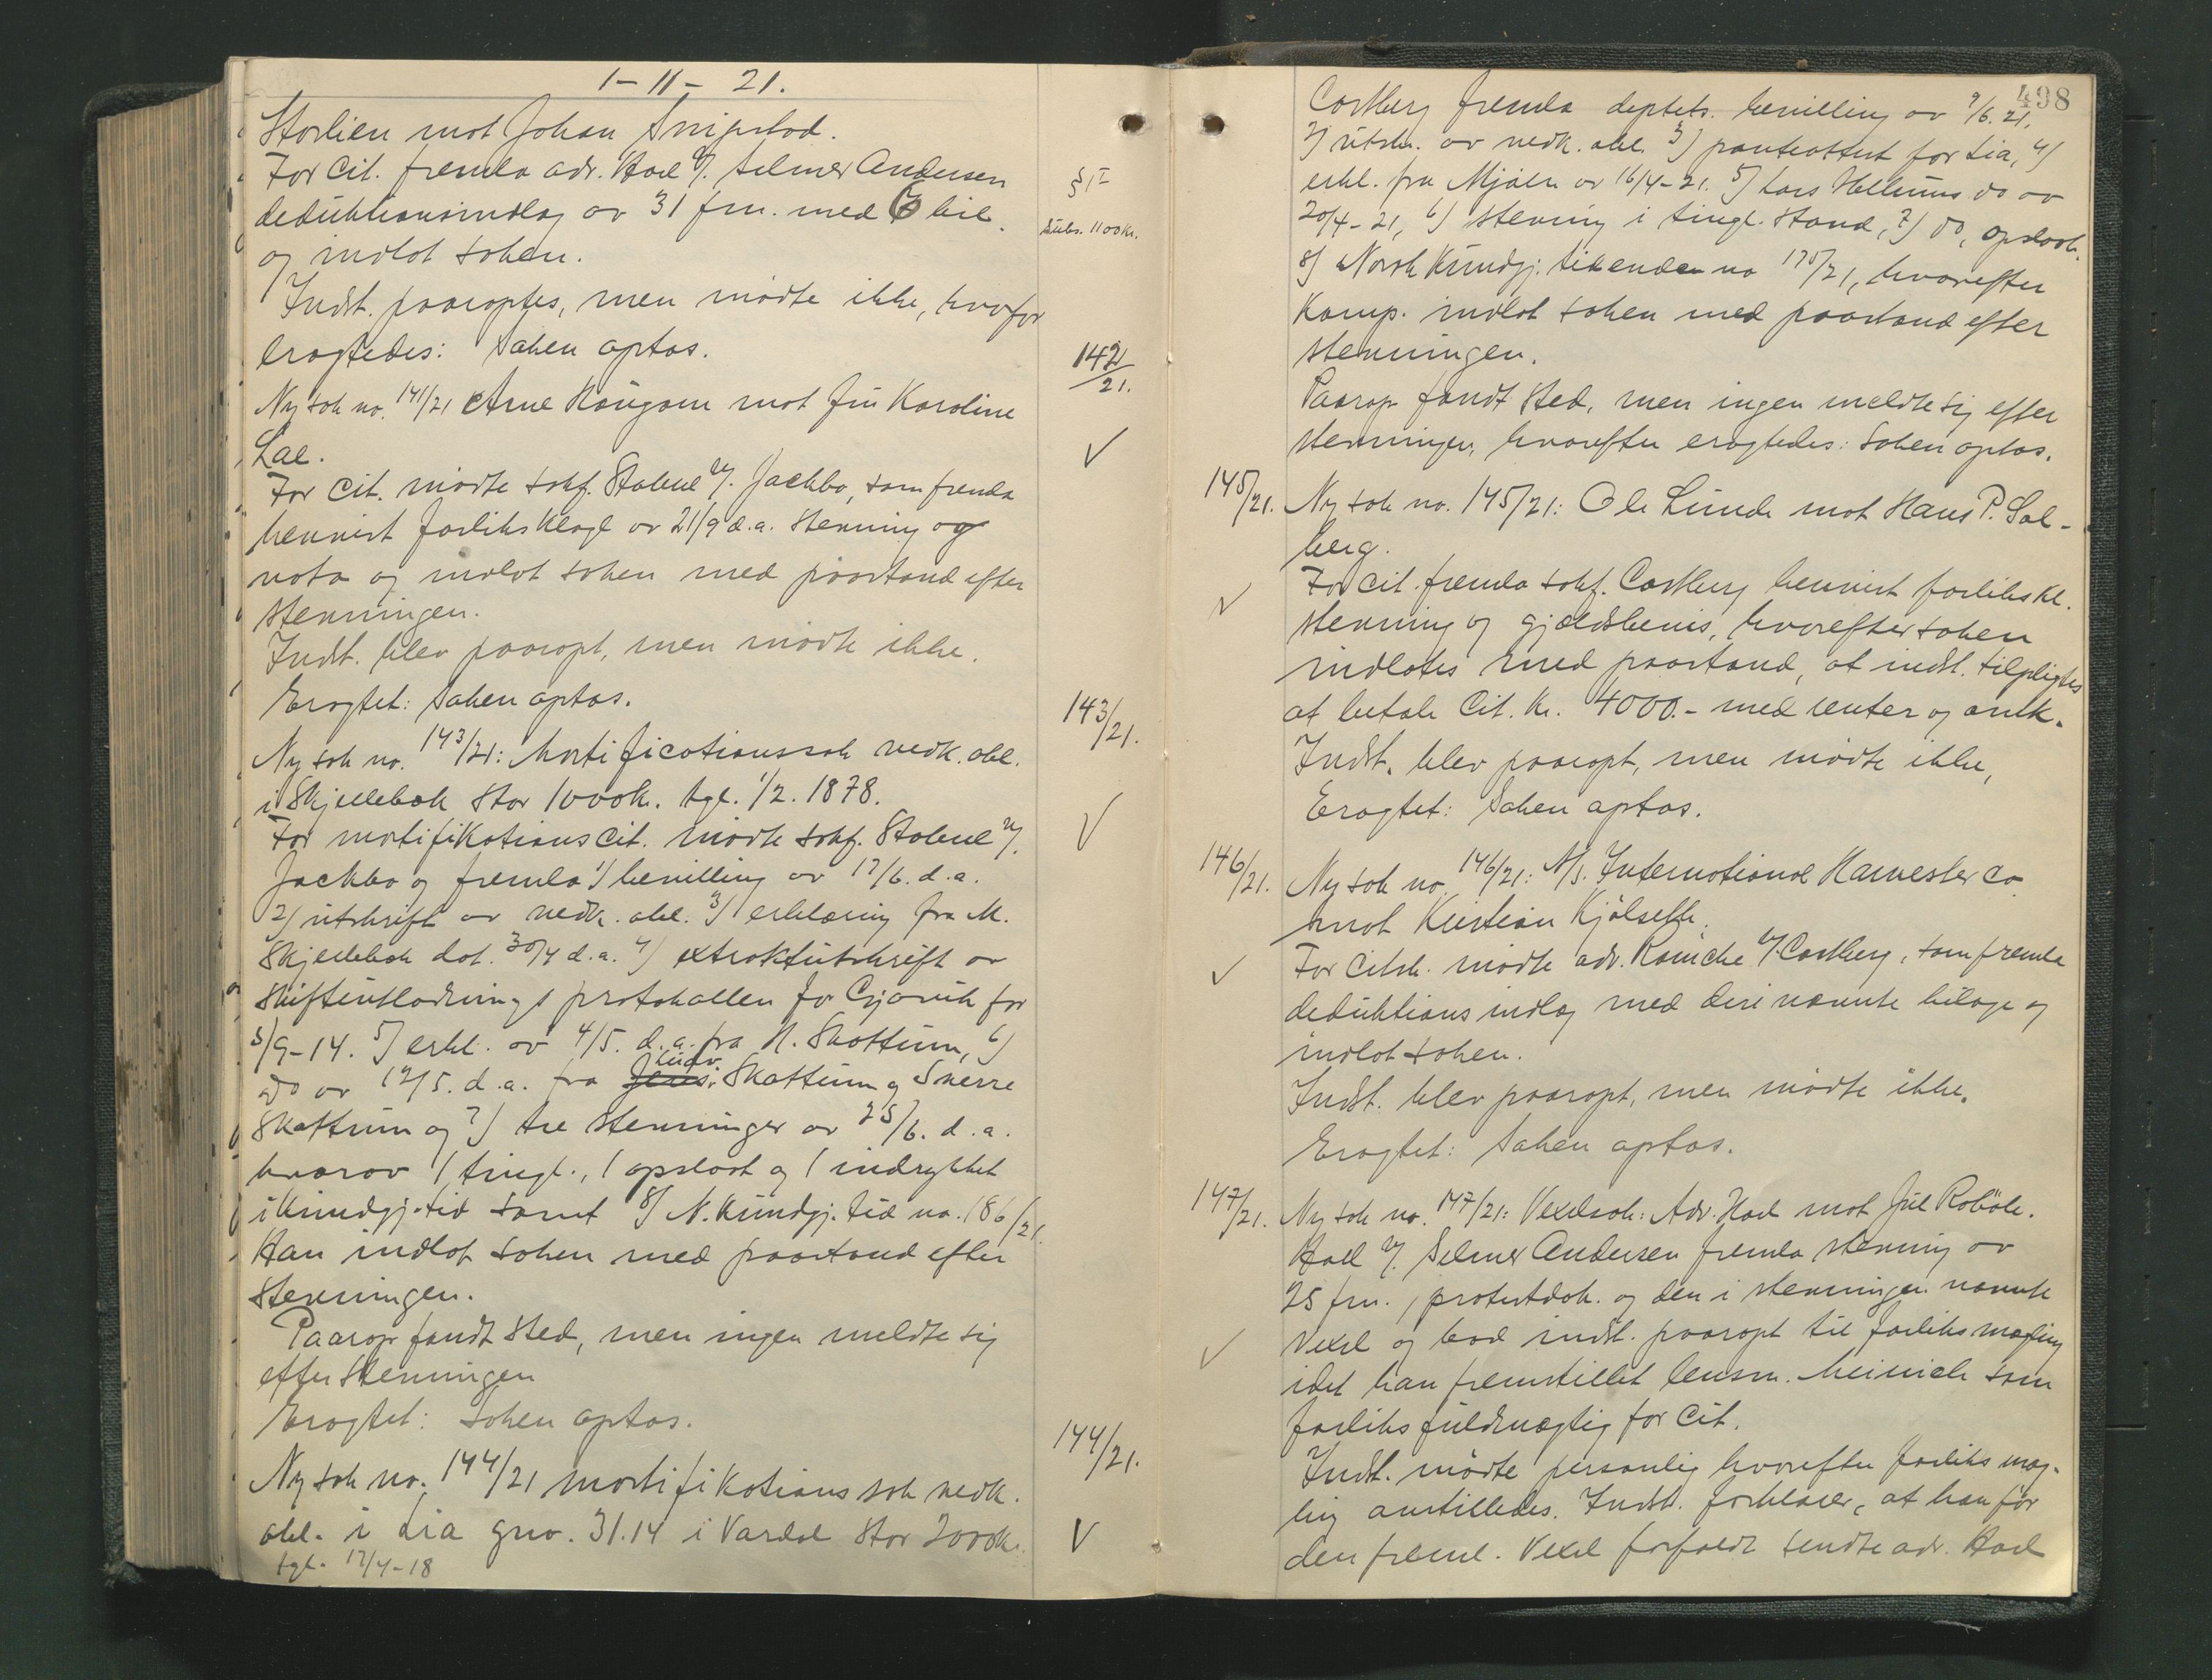 1-11-21.
Storlien mot Johan Snipstad.
For cit. fremla adv. Hoel v/. Selmer Andersen
deduktionsindlæg av 31 f.m. med 6 bil.
og indlot saken.
Indst. paaroptes, men mødte ikke, hvorfor
eragtedes: Saken optas.
§1 I
Subs. 1100 kr.
142/21.
Ny sak no. 141/21 Arne Haugom mot fru Karoline
Lae.
For cit. mødte sakf. Stabel v/. Jackbo, som fremla
henvist forliksklage av 21/9 d.a. stevning og
nota og indlot saken med paastand efter
stevningen.
Indst. blev paaropt, men mødte ikke.
Eragtet: Saken optas.
143/21.
Ny sak no. 143/21: Mortificationssak vedk. obl.
i Skjellebæk stor 1000 kr. tgl. 1/2. 1878.
For mortifikationscit. mødte sakf. Stabel v/.
Jackbo og fremla 1) bevilling av 17/6. d.a.
2) utskrift av vedk. obl. 3) erklæring fra M.
Skjellebæk dat. 30/4 d.a. 4) extraktutskrift av
skifteutlodnings protokollen for Gjøvik for
3/9-14. 5) erkl. av 4/5. d.a. fra N. Skattum, 6)
do av 12/5. d.a. fra Ludv. Skattum og Sverre
Skattum og 7) tre stevninger av 25/6. d.a.
hvorav 1 tingl., 1 opslaat og 1 indrykket
i Kundgj. tid samt 8) N. Kundgj. tid no. 186/21.
Han indlot saken med paastand efter
stevningen.
Paarop fandt sted, men ingen meldte sig
efter stevningen
Eragtet: saken optas.
144/21.
Ny sak no. 144/21 mortifikationssak vedk.
obl. i Lia gno. 31.14 i Vardal stor 2000 kr.
tgl. 12/4-18
498
Castberg fremla deptets. bevilling av 9/6. 21,
2) utskr. av vedk. obl. 3) panteattest for Lia, 4)
erkl. fra Mjøen av 16/4-21. 5) Lars Hellums do av
20/4-21, 6) stevning i tingl. stand, 7) do, opslaat.
8) Norsk Kundgj. tidende no 175/21, hvorefter
komp. indlot saken med paastand efter
stevningen.
Paarop fandt sted, men ingen meldte sig efter
stevningen, hvorefter eragtedes: Saken optas.
145/21. Ny sak no. 145/21: Ole Lunde mot Hans P. Sol-
berg.
For cit. fremla sakf. Castberg henvist forlikskl.
stevning og gjældsbevis, hvorefter saken
indlotes med paastand, at indst. tilpligtes
at betale cit. kr. 4000.- med renter og omk.
Indst. blev paaropt, men mødte ikke,
Eragtet: Saken optas.
146/21. Ny sak no. 146/21: A/S. International Harvester Co
mot Kristian Kjølseth.
For citsk. mødte adv. Rynche v/ Castberg, som fremla
deduktionsindlæg med deri nævnte bilage og
indlot saken.
Indst. blev paaropt, men mødte ikke.
Eragtet: Saken optas.
147/21. Ny sak no. 147/21: Vexelsak: Adv. Hoel mot Jul Robøle.
Hoel v/. Selmer Andersen fremla stevning av
25 f.m., protestdok. og den i stevningen nævnte
vexel og bad indst. paaropt til forliksmægling
idet han fremstillet lensm. Meinich som
forliksfuldmægtig for cit.
Indst. mødte personlig hvorefter forliksmæg-
ling anstilledes. Indst. forklarer, at han før
den freml. vexel forfaldt sendte adv. Hoel